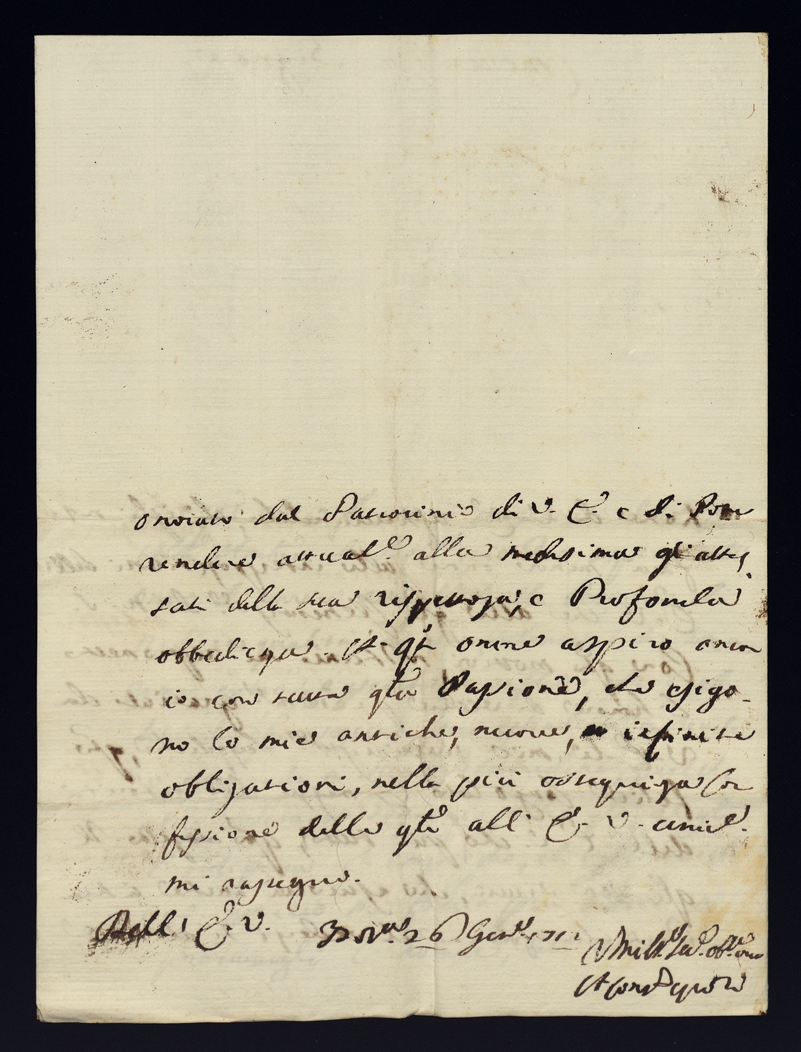 onorato dal Patrocinio di V. E. e di Poter
rendere attual.e alla medesima gl'attes,
tati della sua rispettosa, e Profonda
obbedienza. A q.to onore aspiro anco
io con tutta q.lla Passione, che esigo-
no le mie antiche, nuove, infinite
obbligazioni, nella più ossequiosa con
fessione delle q.li all' E. V. umil.e
mi rassegno.
Dell' E. V. 26 Gen.o
Umil.o Ser.